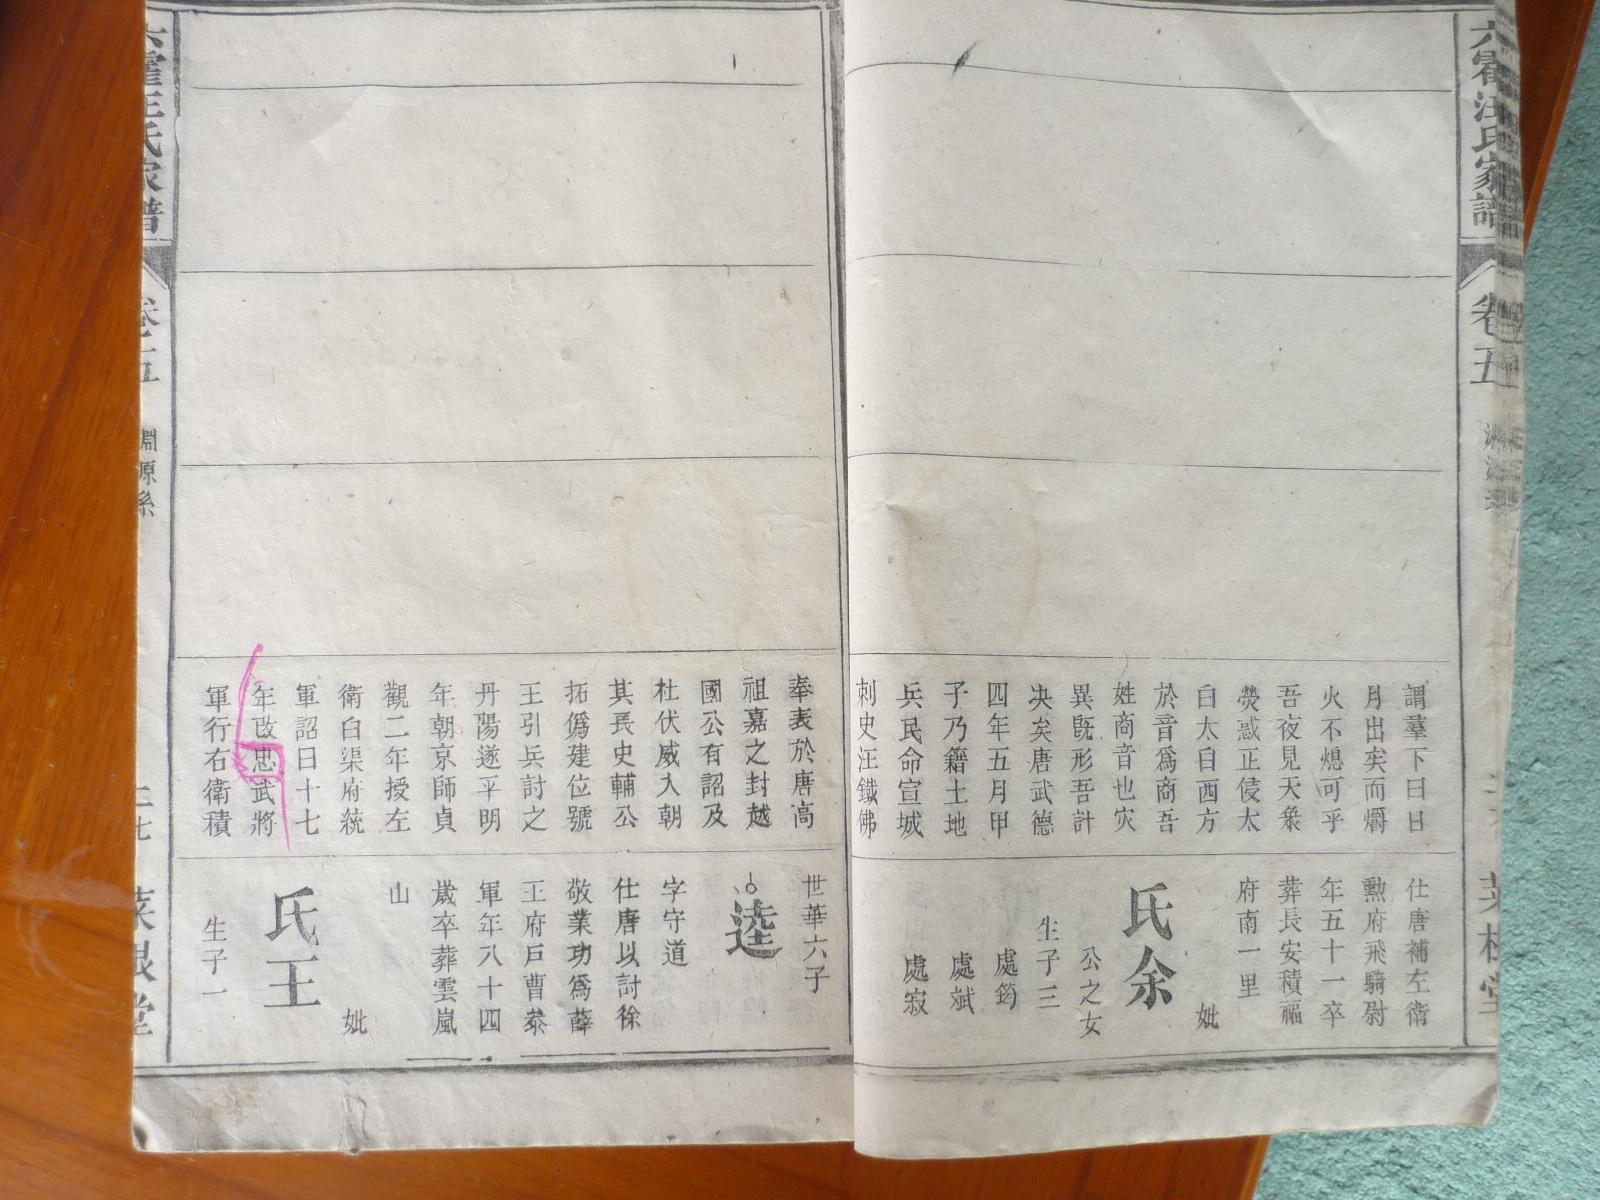 六霍汪氏家譜
卷五
謂羣下曰日
月出矣而爝
火不熄可乎
吾夜見天象
熒惑正侵太
白太白西方
於音爲商吾
姓商音也灾
異旣形吾計
决矣唐武德
四年五月甲
子乃籍土地
兵民命宣城
刺史汪鐵佛
仕唐補左衛
勲府飛騎尉
年五十一卒
葬長安積福
府南一里
妣
氏余
公之女
生子三
處筠
處斌
處寂
奉表於唐高
祖嘉之封越
國公有詔及
杜伏威入朝
其長史輔公
拓僞建位號
王引兵討之
丹陽遂平明
年朝京師貞
觀二年授左
衛白渠府統
軍詔曰十七
年改忠武將
軍行右衛積
世華六子
逵
字守道
仕唐以討徐
敬業功爲薛
王府戸曹叅
軍年八十四
歲卒葬雲嵐
山
妣
氏王
生子一
六霍汪氏家譜
卷五
淵源系
二七
菜根堂